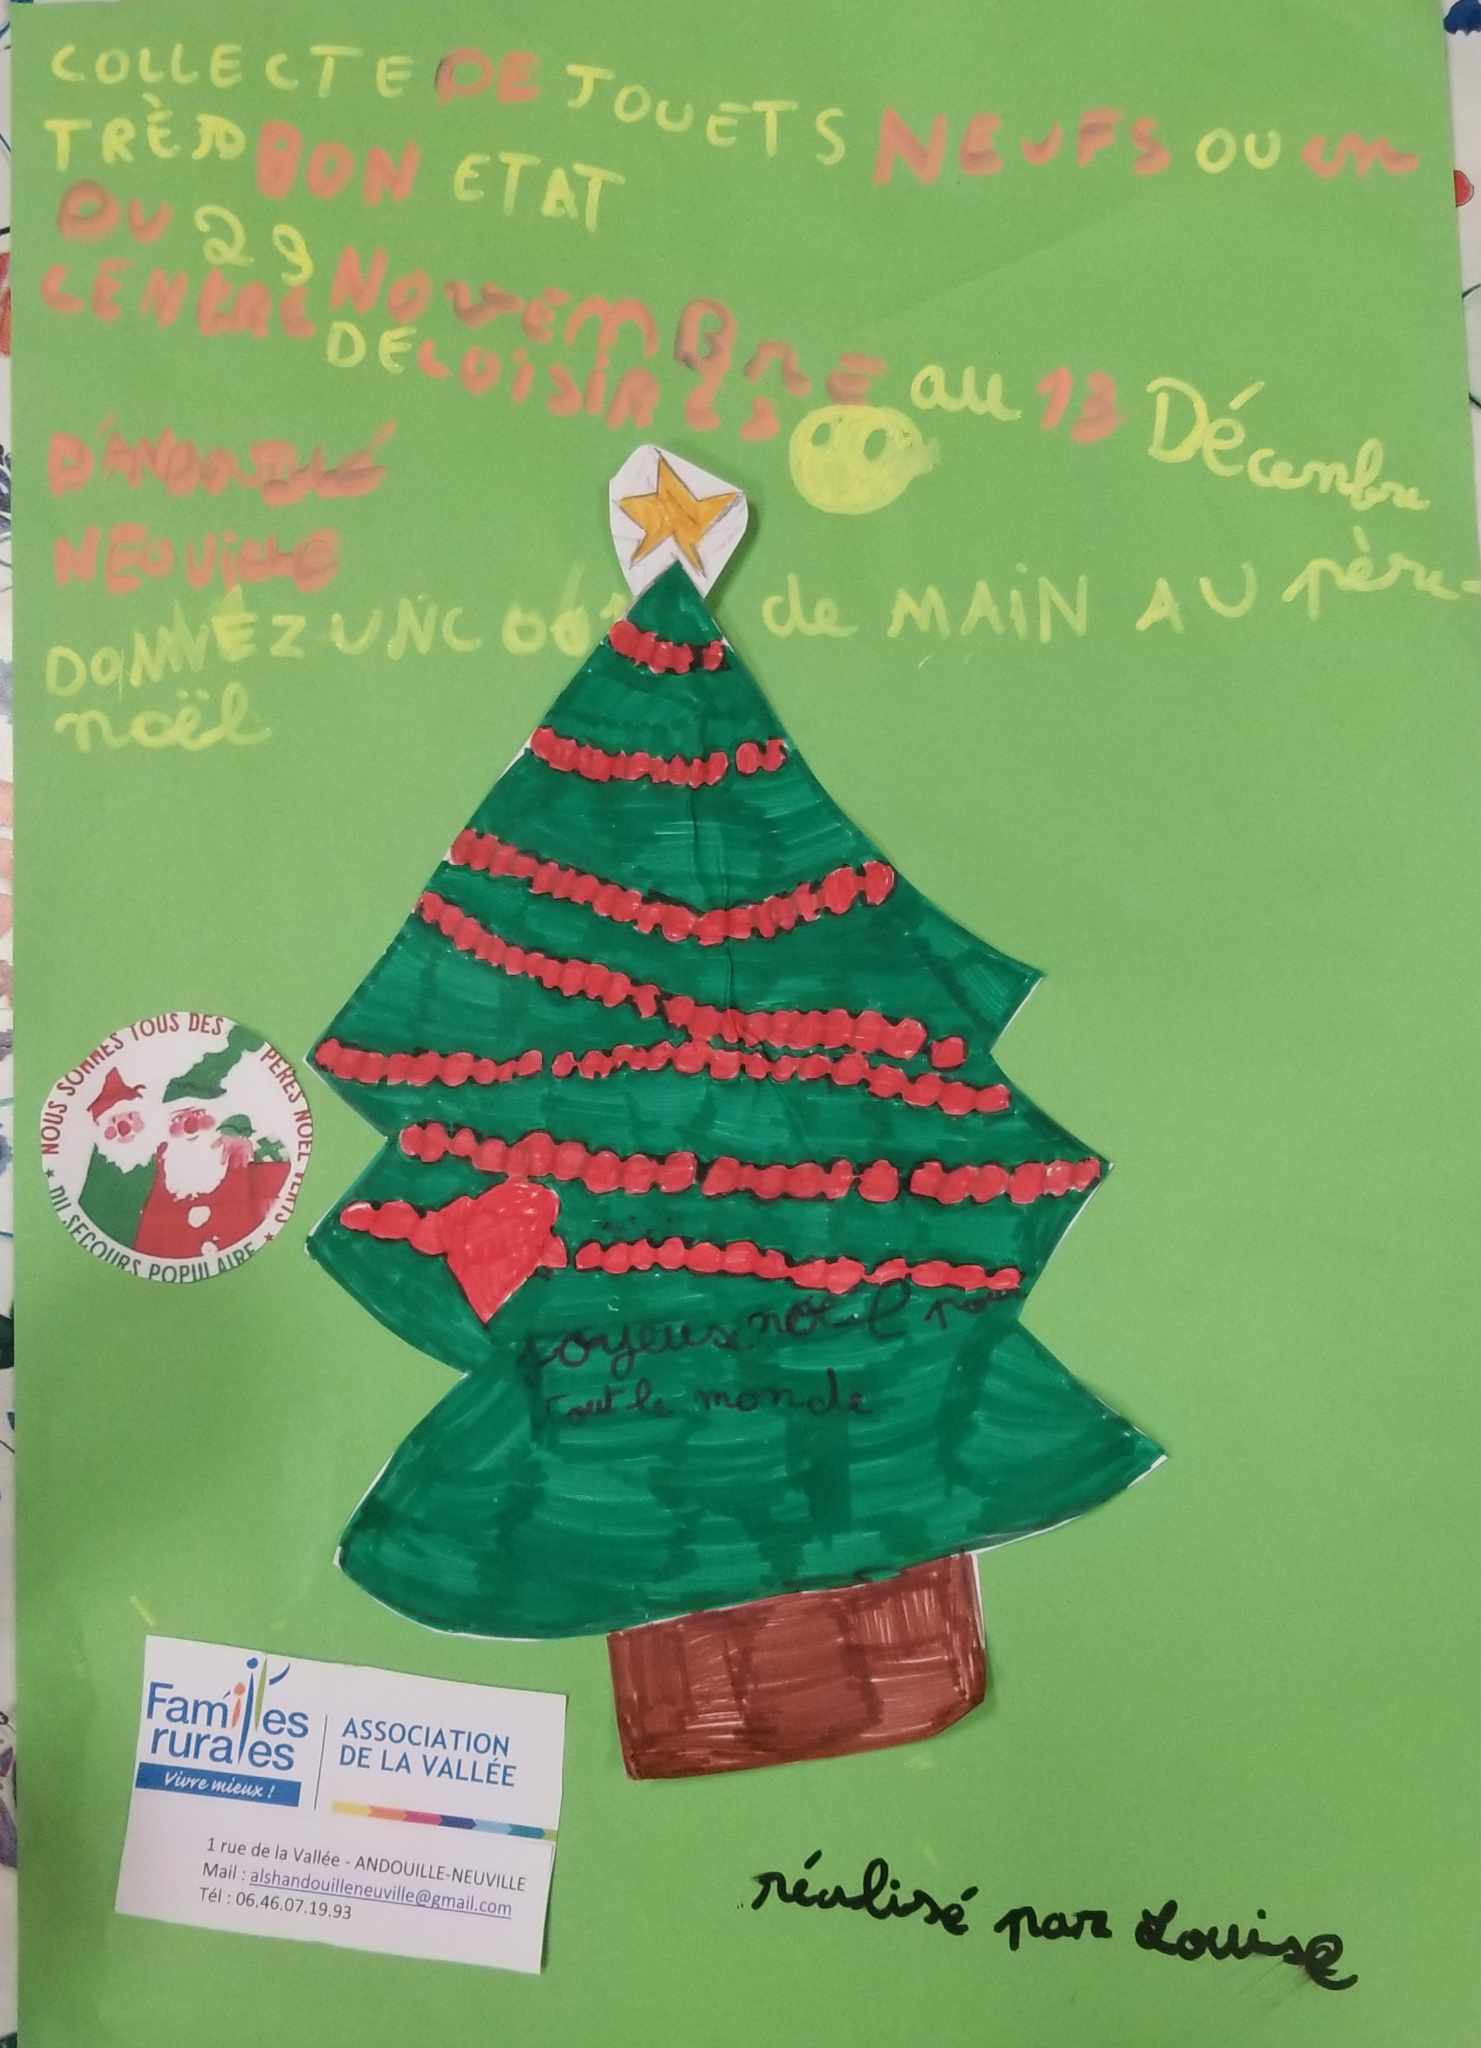 COLLECTE DE JOUETS NEUFS OU en
TRÈS BON ETAT
DU 29 NOVEMBRE au 13 Décembre
CENTRE DE LOISIRES
D'ANDOUILLÉ
NEUVILLE
DONNEZ UNC de MAIN AU père-
noël
NOUS SOMMES TOUS DES PÈRES NOËL VERTS
★ DU SECOURS POPULAIRE ★
joyeux noël pour
tout le monde
Familles
rurales
Vivre mieux !
ASSOCIATION
DE LA VALLÉE
1 rue de la Vallée - ANDOUILLE-NEUVILLE
Mail : alshandouilleneuville@gmail.com
Tél : 06.46.07.19.93
réalisé par Louise